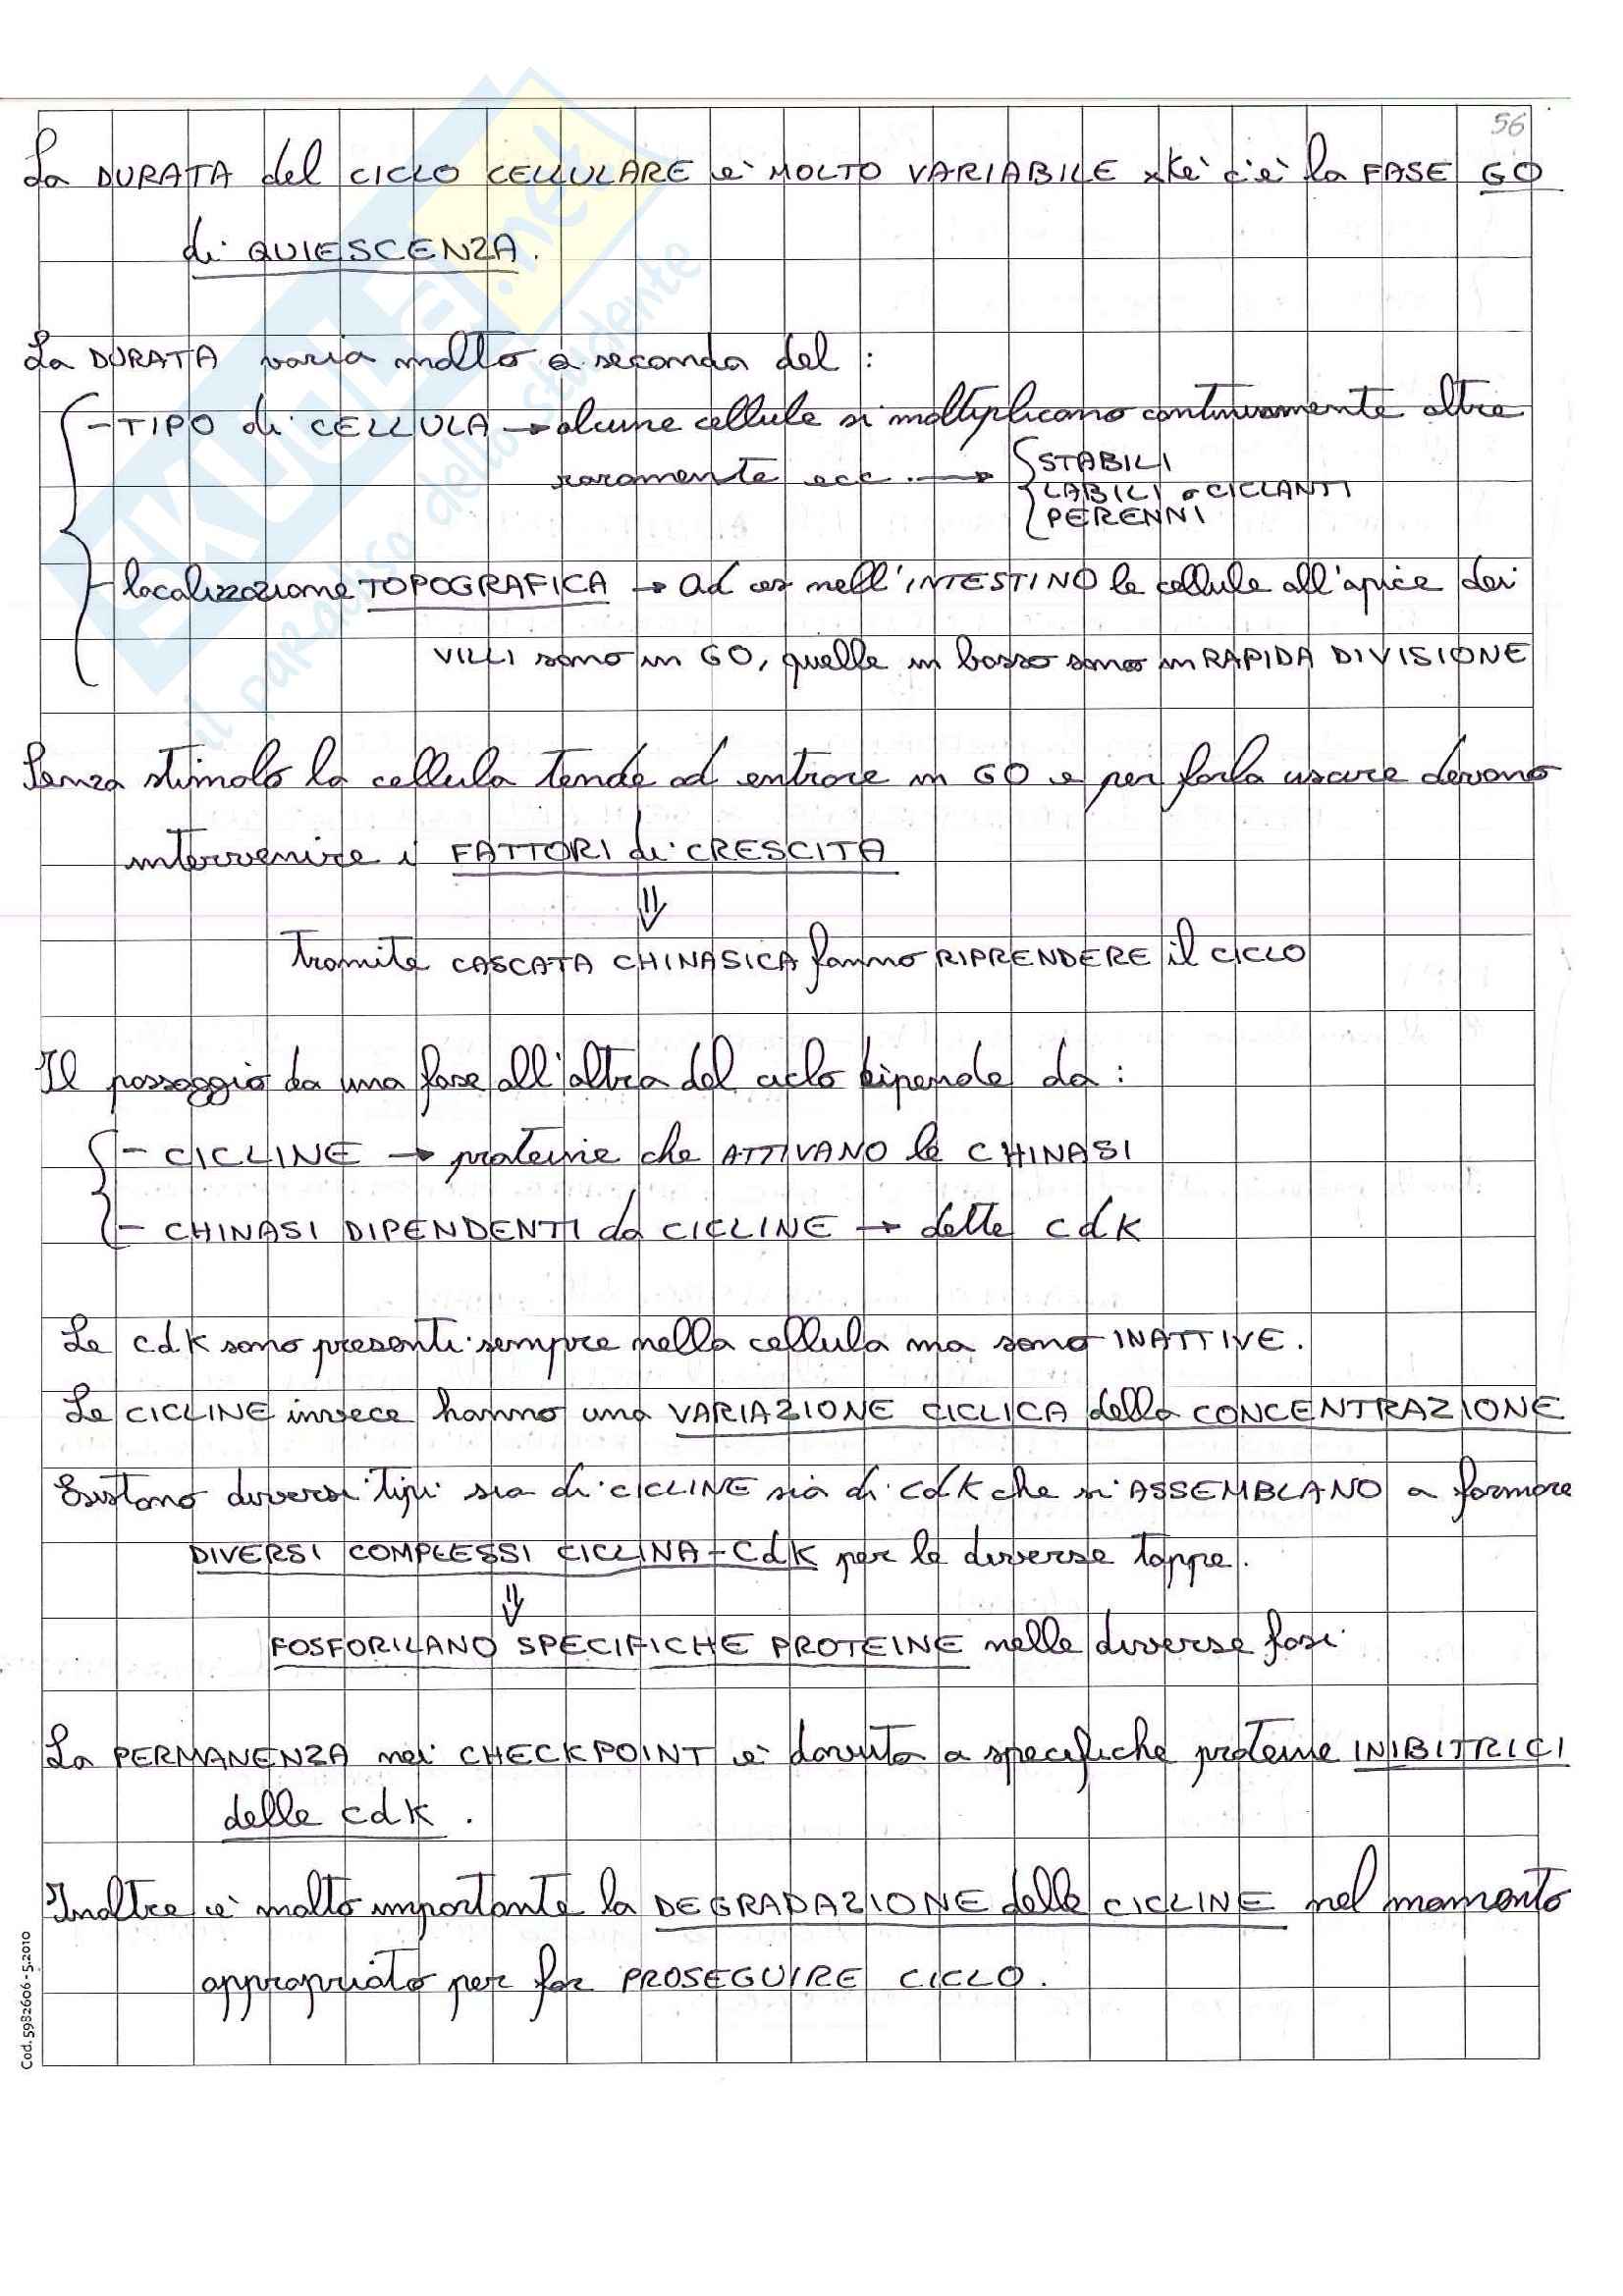 56
La DURATA del CICLO CELLULARE è MOLTO VARIABILE xkè c'è la FASE G0
di QUIESCENZA.
La DURATA varia molto a seconda del :
- TIPO di CELLULA → alcune cellule si moltiplicano continuamente altre
raramente ecc. → STABILI
LABILI o CICLANTI
PERENNI
- localizzazione TOPOGRAFICA → ad es nell'INTESTINO le cellule all'apice dei
VILLI sono in G0, quelle in basso sono in RAPIDA DIVISIONE
Senza stimolo la cellula tende ad entrare in G0 e per farla uscire devono
intervenire i FATTORI di CRESCITA
⇓
tramite CASCATA CHINASICA fanno RIPRENDERE il CICLO
Il passaggio da una fase all'altra del ciclo dipende da :
- CICLINE → proteine che ATTIVANO le CHINASI
- CHINASI DIPENDENTI da CICLINE → dette cdk
Le cdk sono presenti sempre nella cellula ma sono INATTIVE.
Le CICLINE invece hanno una VARIAZIONE CICLICA della CONCENTRAZIONE
Esistono diversi tipi sia di CICLINE sia di cdk che si ASSEMBLANO a formare
DIVERSI COMPLESSI CICLINA-Cdk per le diverse tappe.
⇓
FOSFORILANO SPECIFICHE PROTEINE nelle diverse fasi
La PERMANENZA nei CHECKPOINT è dovuta a specifiche proteine INIBITRICI
delle cdk .
Inoltre è molto importante la DEGRADAZIONE delle CICLINE nel momento
appropriato per far PROSEGUIRE CICLO.
Cod. 5932606 - 5.2010
SKUOLA.net
il paradiso dello studente